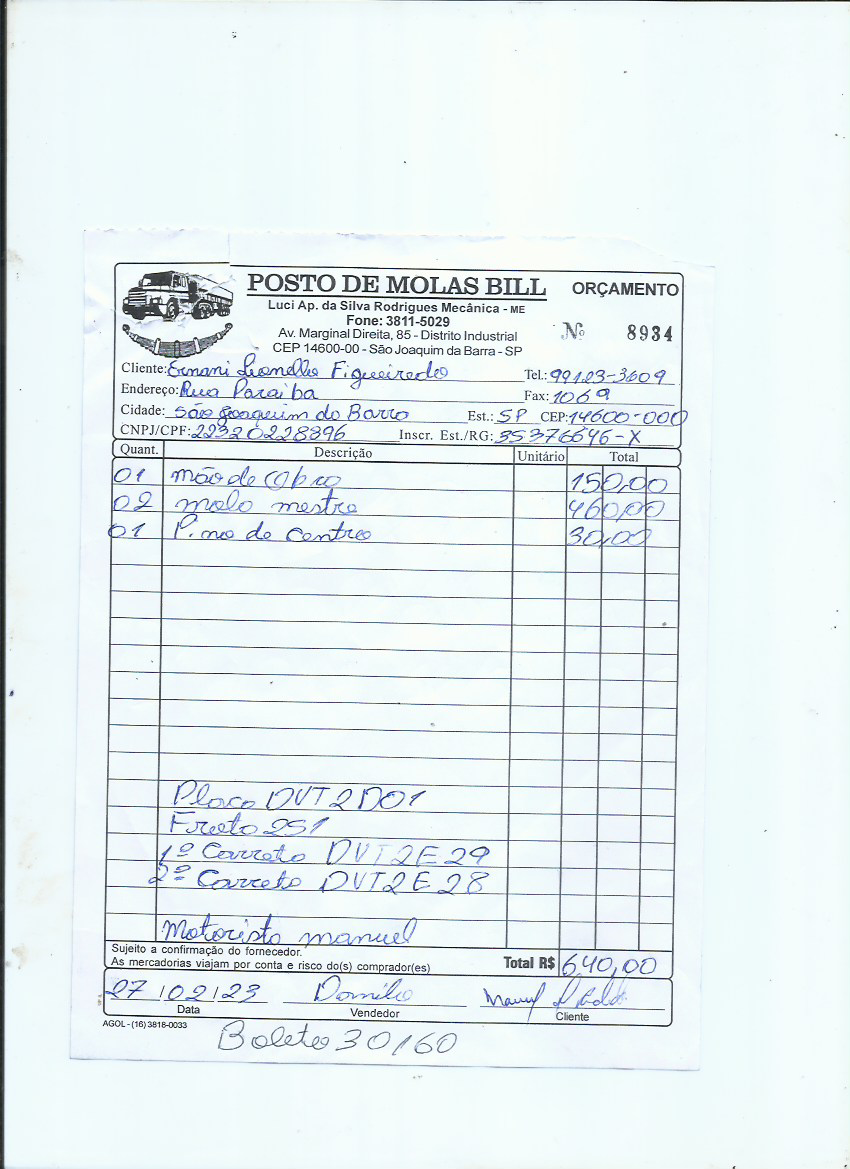 POSTO DE MOLAS BILL
ORÇAMENTO
Luci Ap. da Silva Rodrigues Mecânica - ME
Fone: 3811-5029
Av. Marginal Direita, 85 - Distrito Industrial
CEP 14600-00 - São Joaquim da Barra - SP
Nº 8934
Cliente: Ernani Leonello Figueiredo Tel.: 99123-3609
Endereço: Rua Paraiba Fax: 1069
Cidade: São Joaquim da Barra Est.: SP CEP: 14600-000
CNPJ/CPF: 22320228896 Inscr. Est./RG: 35376646-X
Quant. Descrição Unitário Total
01 mão de Obra 150,00
02 mola mestra 460,00
01 Pino de centro 30,00
Placa DVT2D01
Frota 251
1º Carreta DVT2E29
2º Carreta DVT2E28
Motorista manuel
Sujeito a confirmação do fornecedor.
As mercadorias viajam por conta e risco do(s) comprador(es)
Total R$ 640,00
27/02/23 Manuel
Data Vendedor Cliente
AGOL - (16) 3818-0033
Boleto 30/60